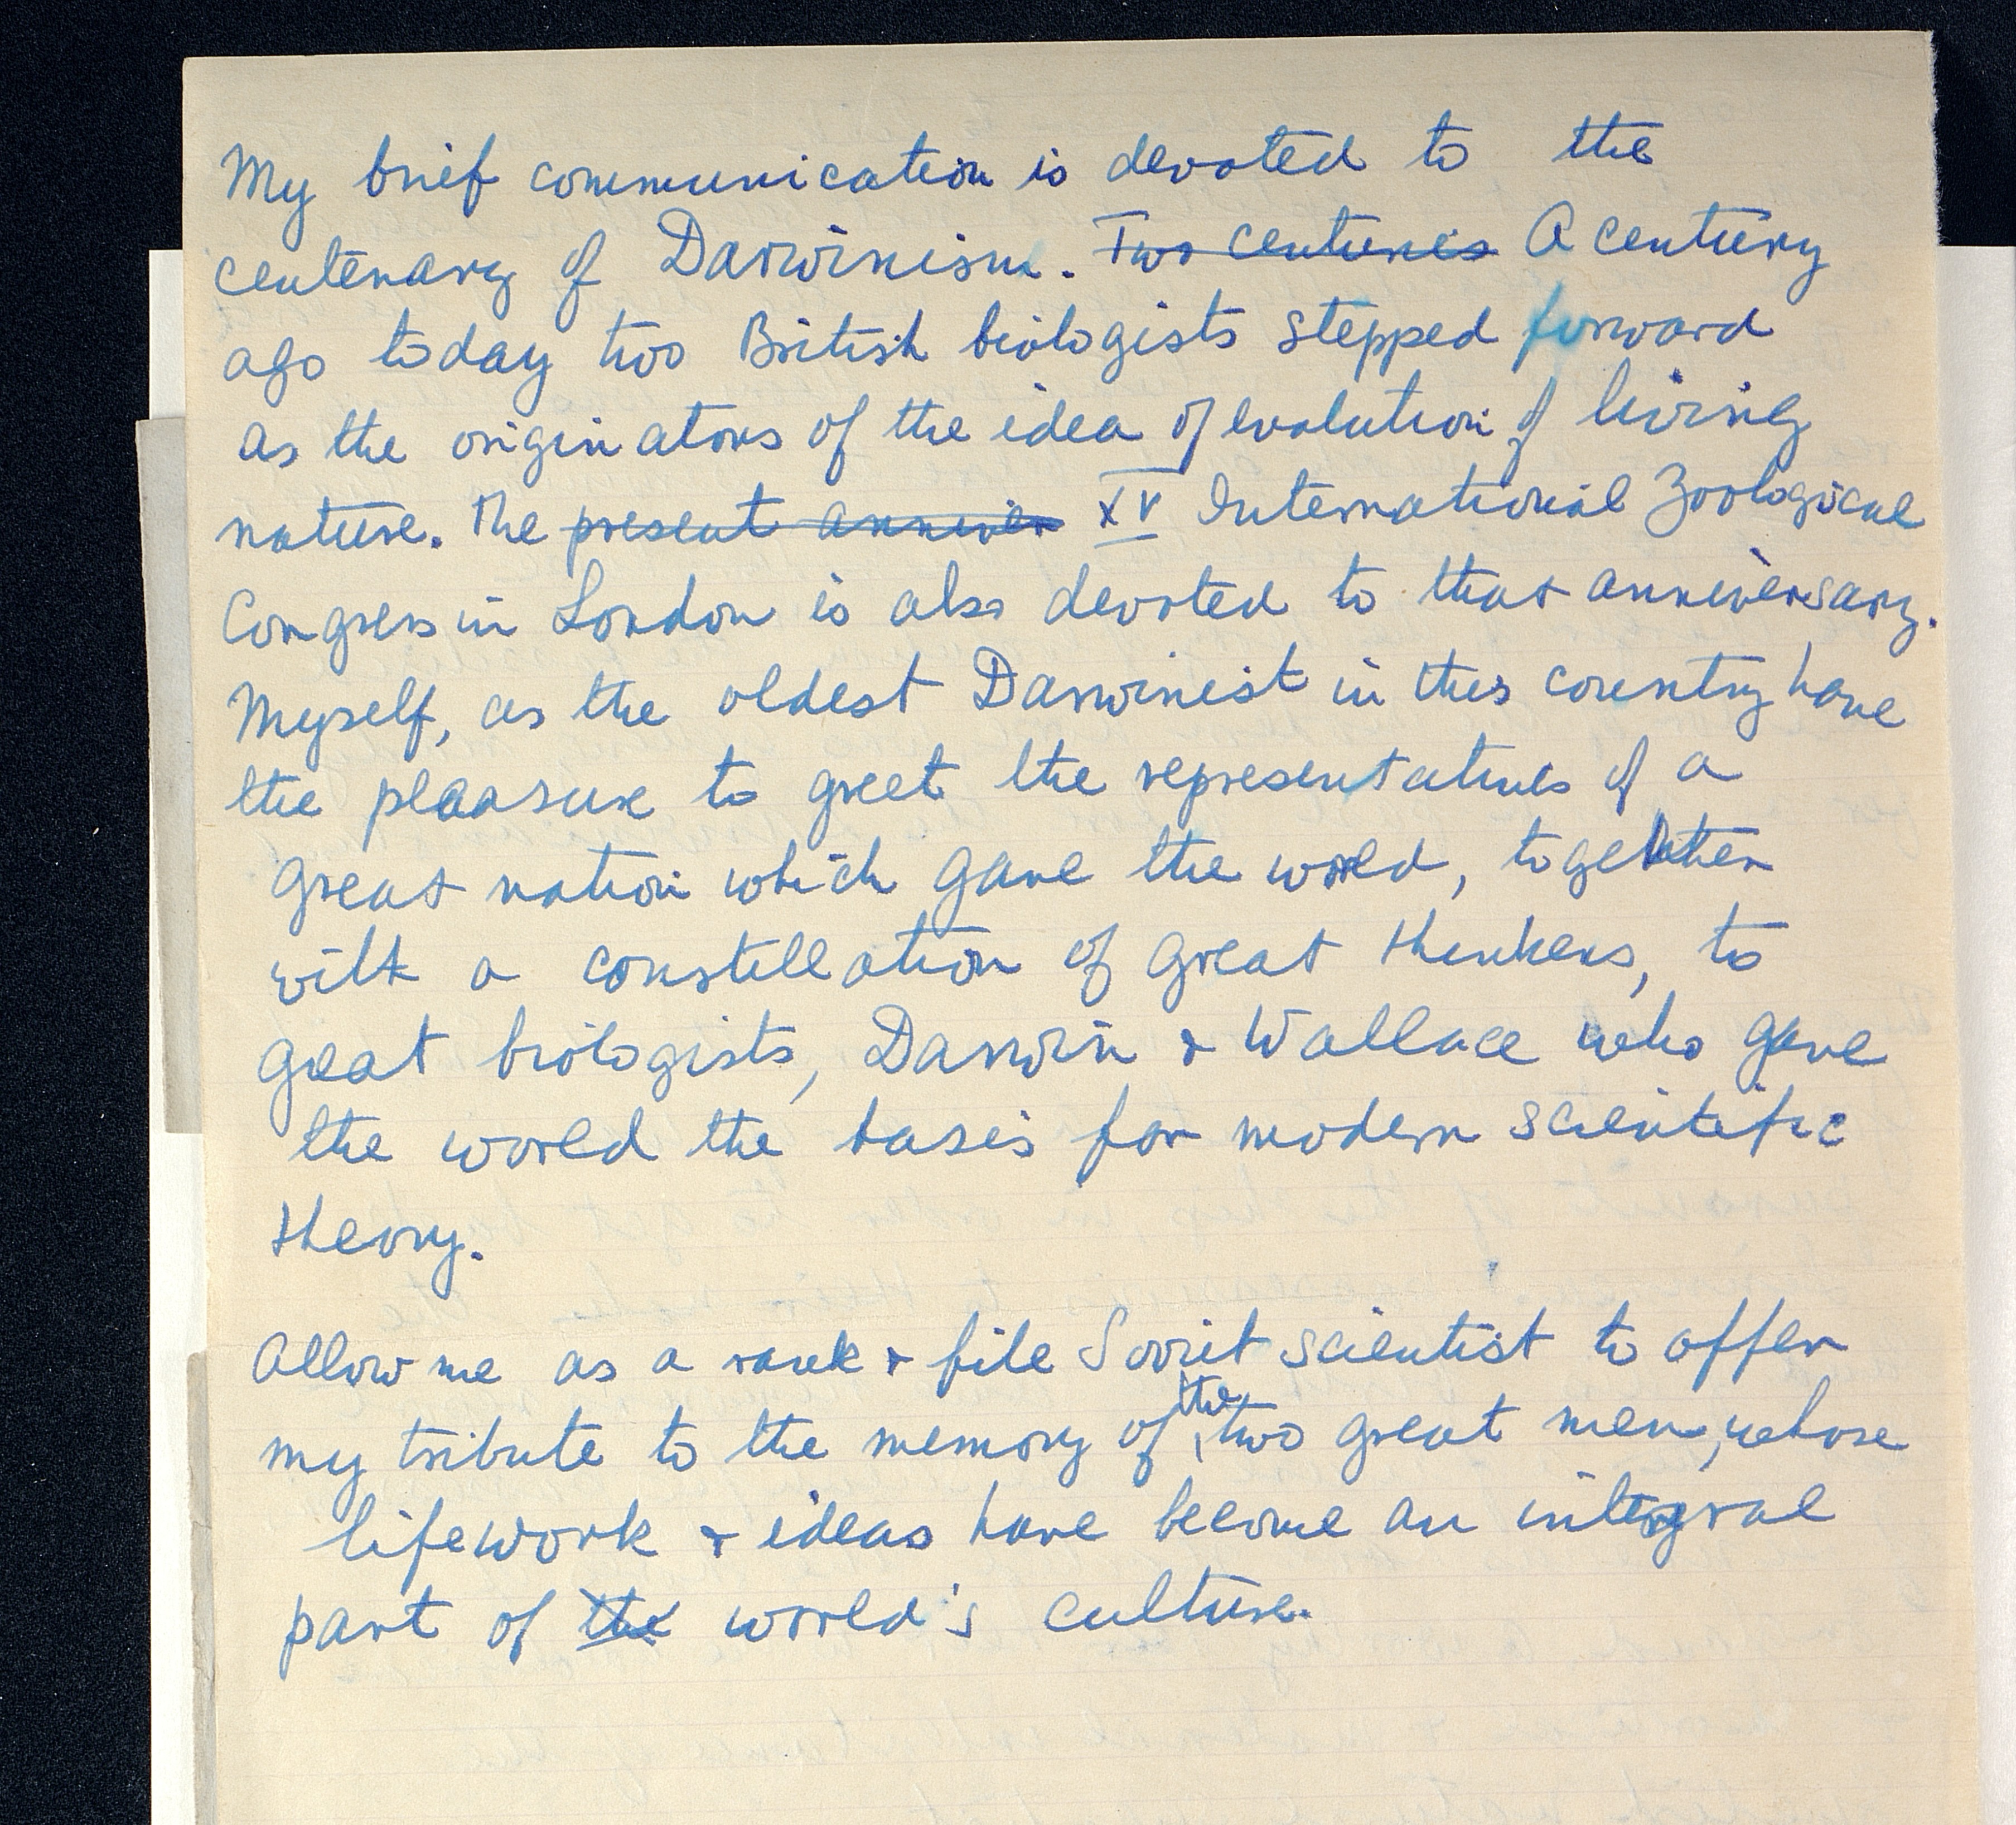 My brief communication is devoted to the
centenary of Darwinism. Two centuries A century
ago today two British biologists stepped forward
as the originators of the idea of evolution of living
nature. The present anniver XV International Zoological
Congress in London is also devoted to that anniversary.
Myself, as the oldest Darwinist in this country have
the pleasure to greet the representatives of a
great nation which gave the world, together
with a constellation of great thinkers, to
great biologists, Darwin & Wallace who gave
the world the basis for modern scientific
theory.
Allow me as a rank & file Soviet scientist to offer
my tribute to the memory of the two great men, whose
lifework & ideas have become an integral
part of the world's culture.